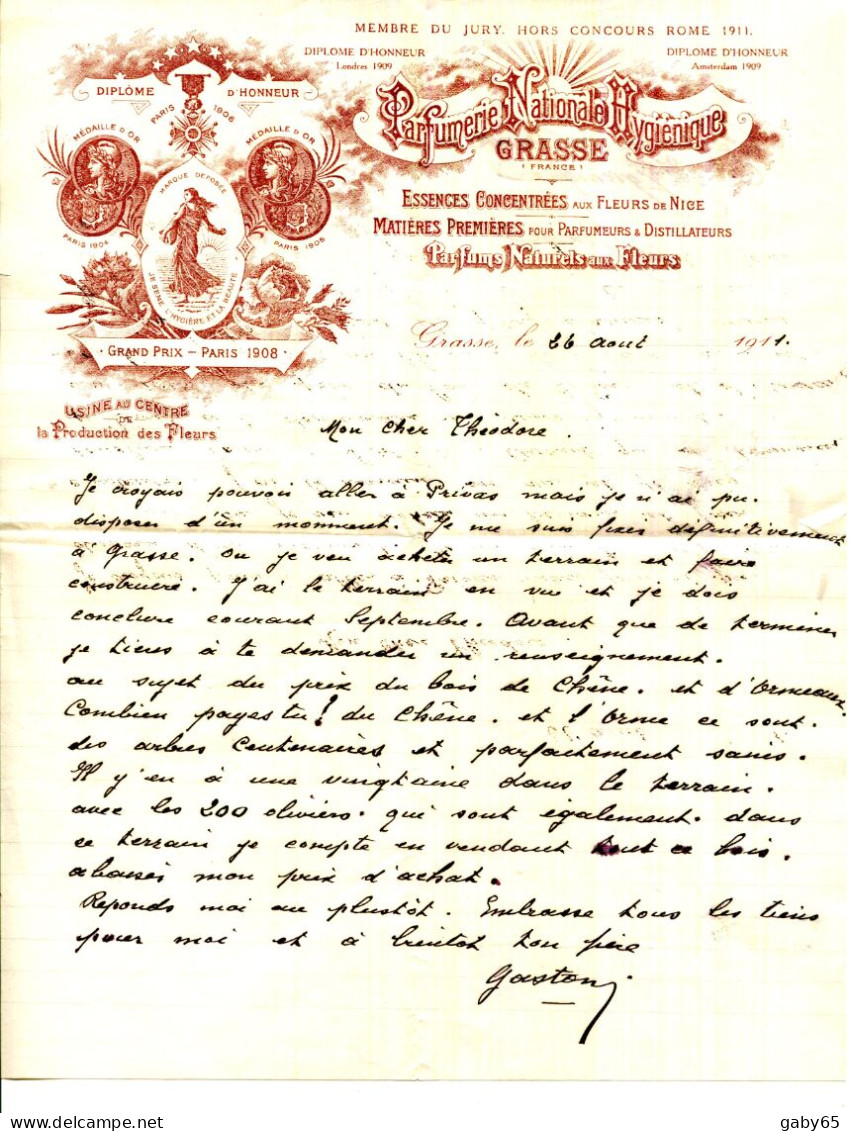 MEMBRE DU JURY. HORS CONCOURS ROME 1911.
DIPLOME D'HONNEUR
Londres 1909
DIPLOME D'HONNEUR
Amsterdam 1909
Parfumerie Nationale Hygiènique
GRASSE
(FRANCE)
ESSENCES CONCENTRÉES AUX FLEURS DE NICE
MATIÈRES PREMIÈRES POUR PARFUMEURS & DISTILLATEURS
Parfums Naturels aux Fleurs
DIPLÔME D'HONNEUR
PARIS 1906
MÉDAILLE D'OR
MÉDAILLE D'OR
PARIS 1904
PARIS 1905
MARQUE DEPOSÉE
JE SÈME L'HYGIÈNE ET LA BEAUTÉ
GRAND PRIX - PARIS 1908
USINE AU CENTRE
DE
la Production des Fleurs
Grasse, le 26 aout 1911.
Mon cher Théodore.
Je croyais pouvoir aller à Privas mais je n'ai pu.
disposer d'un momment. Je me suis fixer définitivement
à Grasse. ou je veu acheter un terrain et faire
construire. J'ai le terrain en vue et je dois
conclure courant Septembre. Avant que de terminer
je tiens à te demander un renseignement.
au sujet du prix du bois de Chêne. et d'Ormeaux.
Combien payes tu! du Chêne. et l'Orme ce sont.
des arbres Centenaires et parfaitement sains.
Il y'en à une vingtaine dans le terrain.
avec les 200 oliviers. qui sont également. dans
ce terrain je compte en vendant tout ce bois.
abaisser mon prix d'achat.
Reponds moi au plustôt. Embrasse tous les tiens
pour moi et à bientot ton
Gaston
gaby65